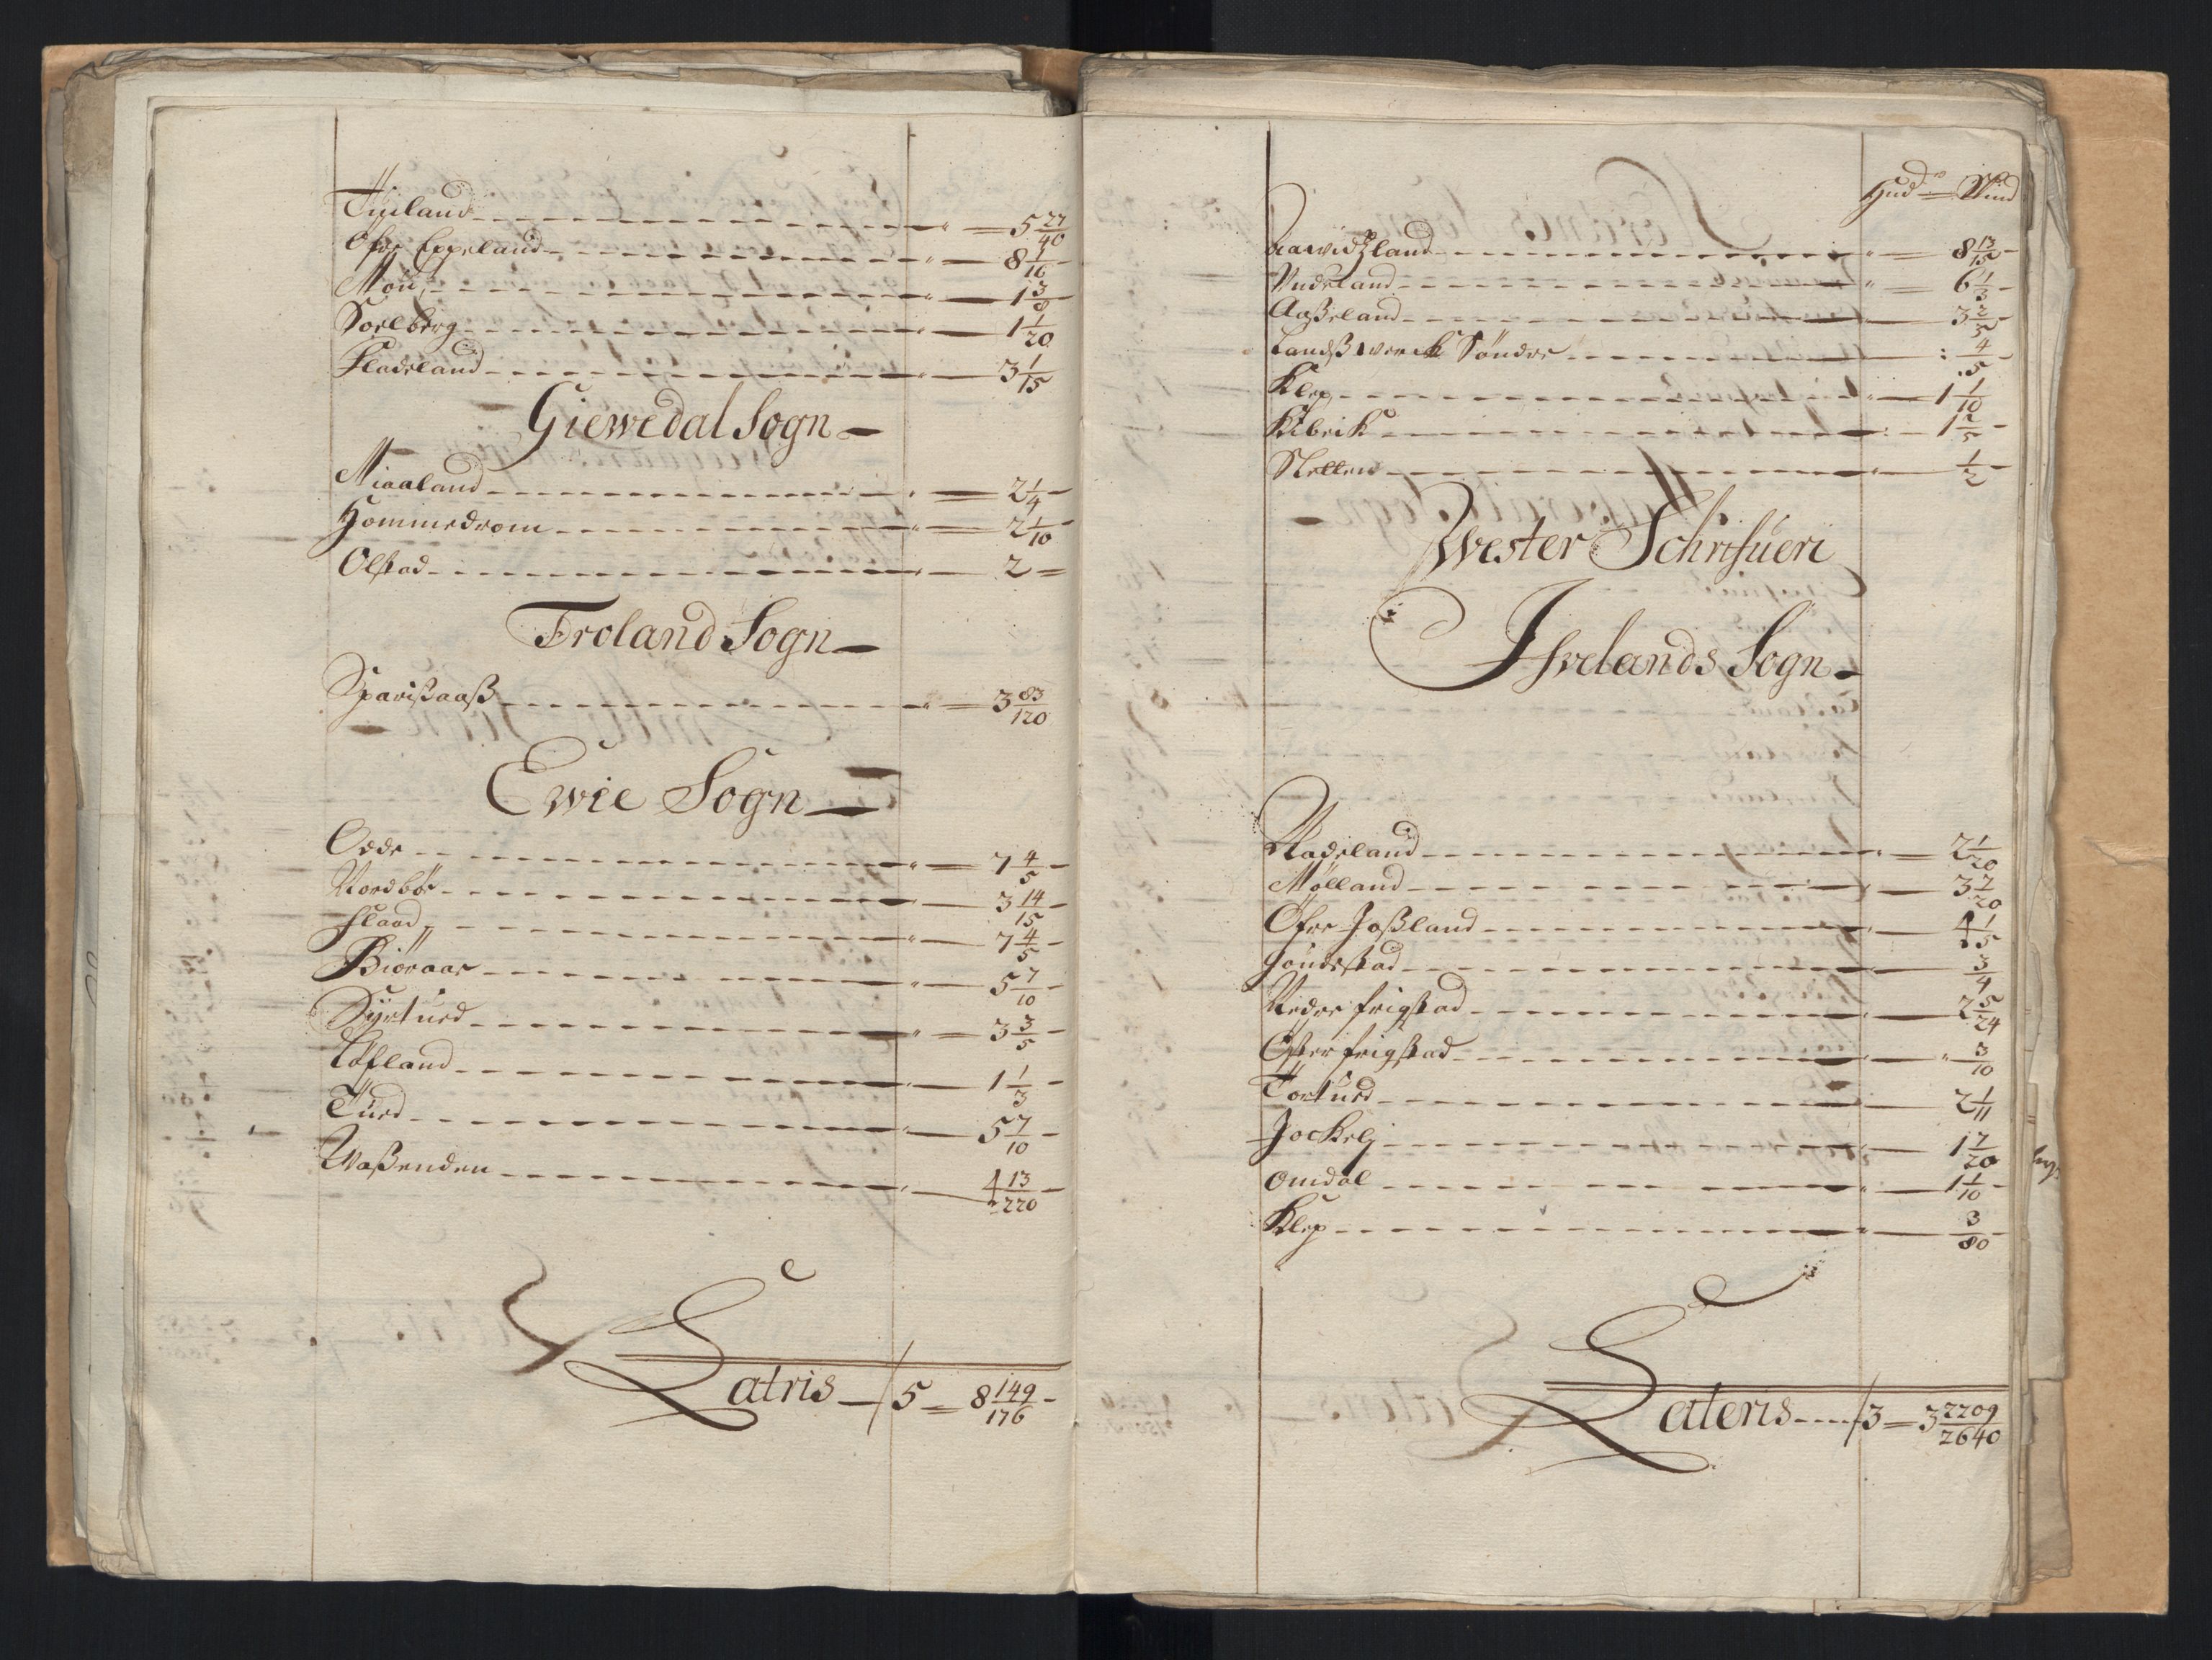 Tiuland - - - " = 5 27/40
Ofre Eppeland - - - " = 8 1/16
Mou - - - " - 1 3/8
Soelberg - - - " - 1 1/20
Fladeland - - - " - 3 1/15
Giewedal Sogn
Miaaland - - - " = 2 1/4
Hommedrom - - - " = 2 1/10
Olstad - - - " - 2 =
Froland Sogn
Sparißaaß - - - " = 3 83/120
Ewie Sogn
Odde - - - " = 7 4/5
Nordbøe - - - " - 3 14/15
Flaad - - - " - 7 4/5
Biøraae - - - " - 5 7/10
Syrtued - - - " = 3 3/5
Løfland - - - " - 1 1/3
Tued - - - " - 5 7/10
Waßenden - - - " - 4 13/220
Latris - 5 = 8 149/176
Hudr = Skind
Aawidzland - - - " = 8 13/15
Undeland - - - " = 6 1/3
Aaßeland - - - 3 2/5
Landßwerck Søndre - - - : 4/5
Klep - - - " - 1 1/10
Kibeik - - - : - 1 2/5
Sletten - - - " - 1/2
Wester Schrifueri
Ifvelands Sogn
Rageland - - - " = 2 1/20
Mølland - - - " - 3 7/20
Ofre Joßland - - - " - 4 1/5
Hundestad - - - " - 3/4
Nedre frigstad - - - " - 2 5/24
Øfter frigstad - - - " - " 3/10
Tortued - - - " - 2 1/11
Jockeli - - - " - 1 7/20
Omdal - - - " - 1 1/10
Klep - - - " - 3/80
Lateris - - - 3 = 3 2209/2640